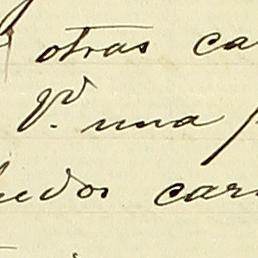 otras ca
pr. una
edos car